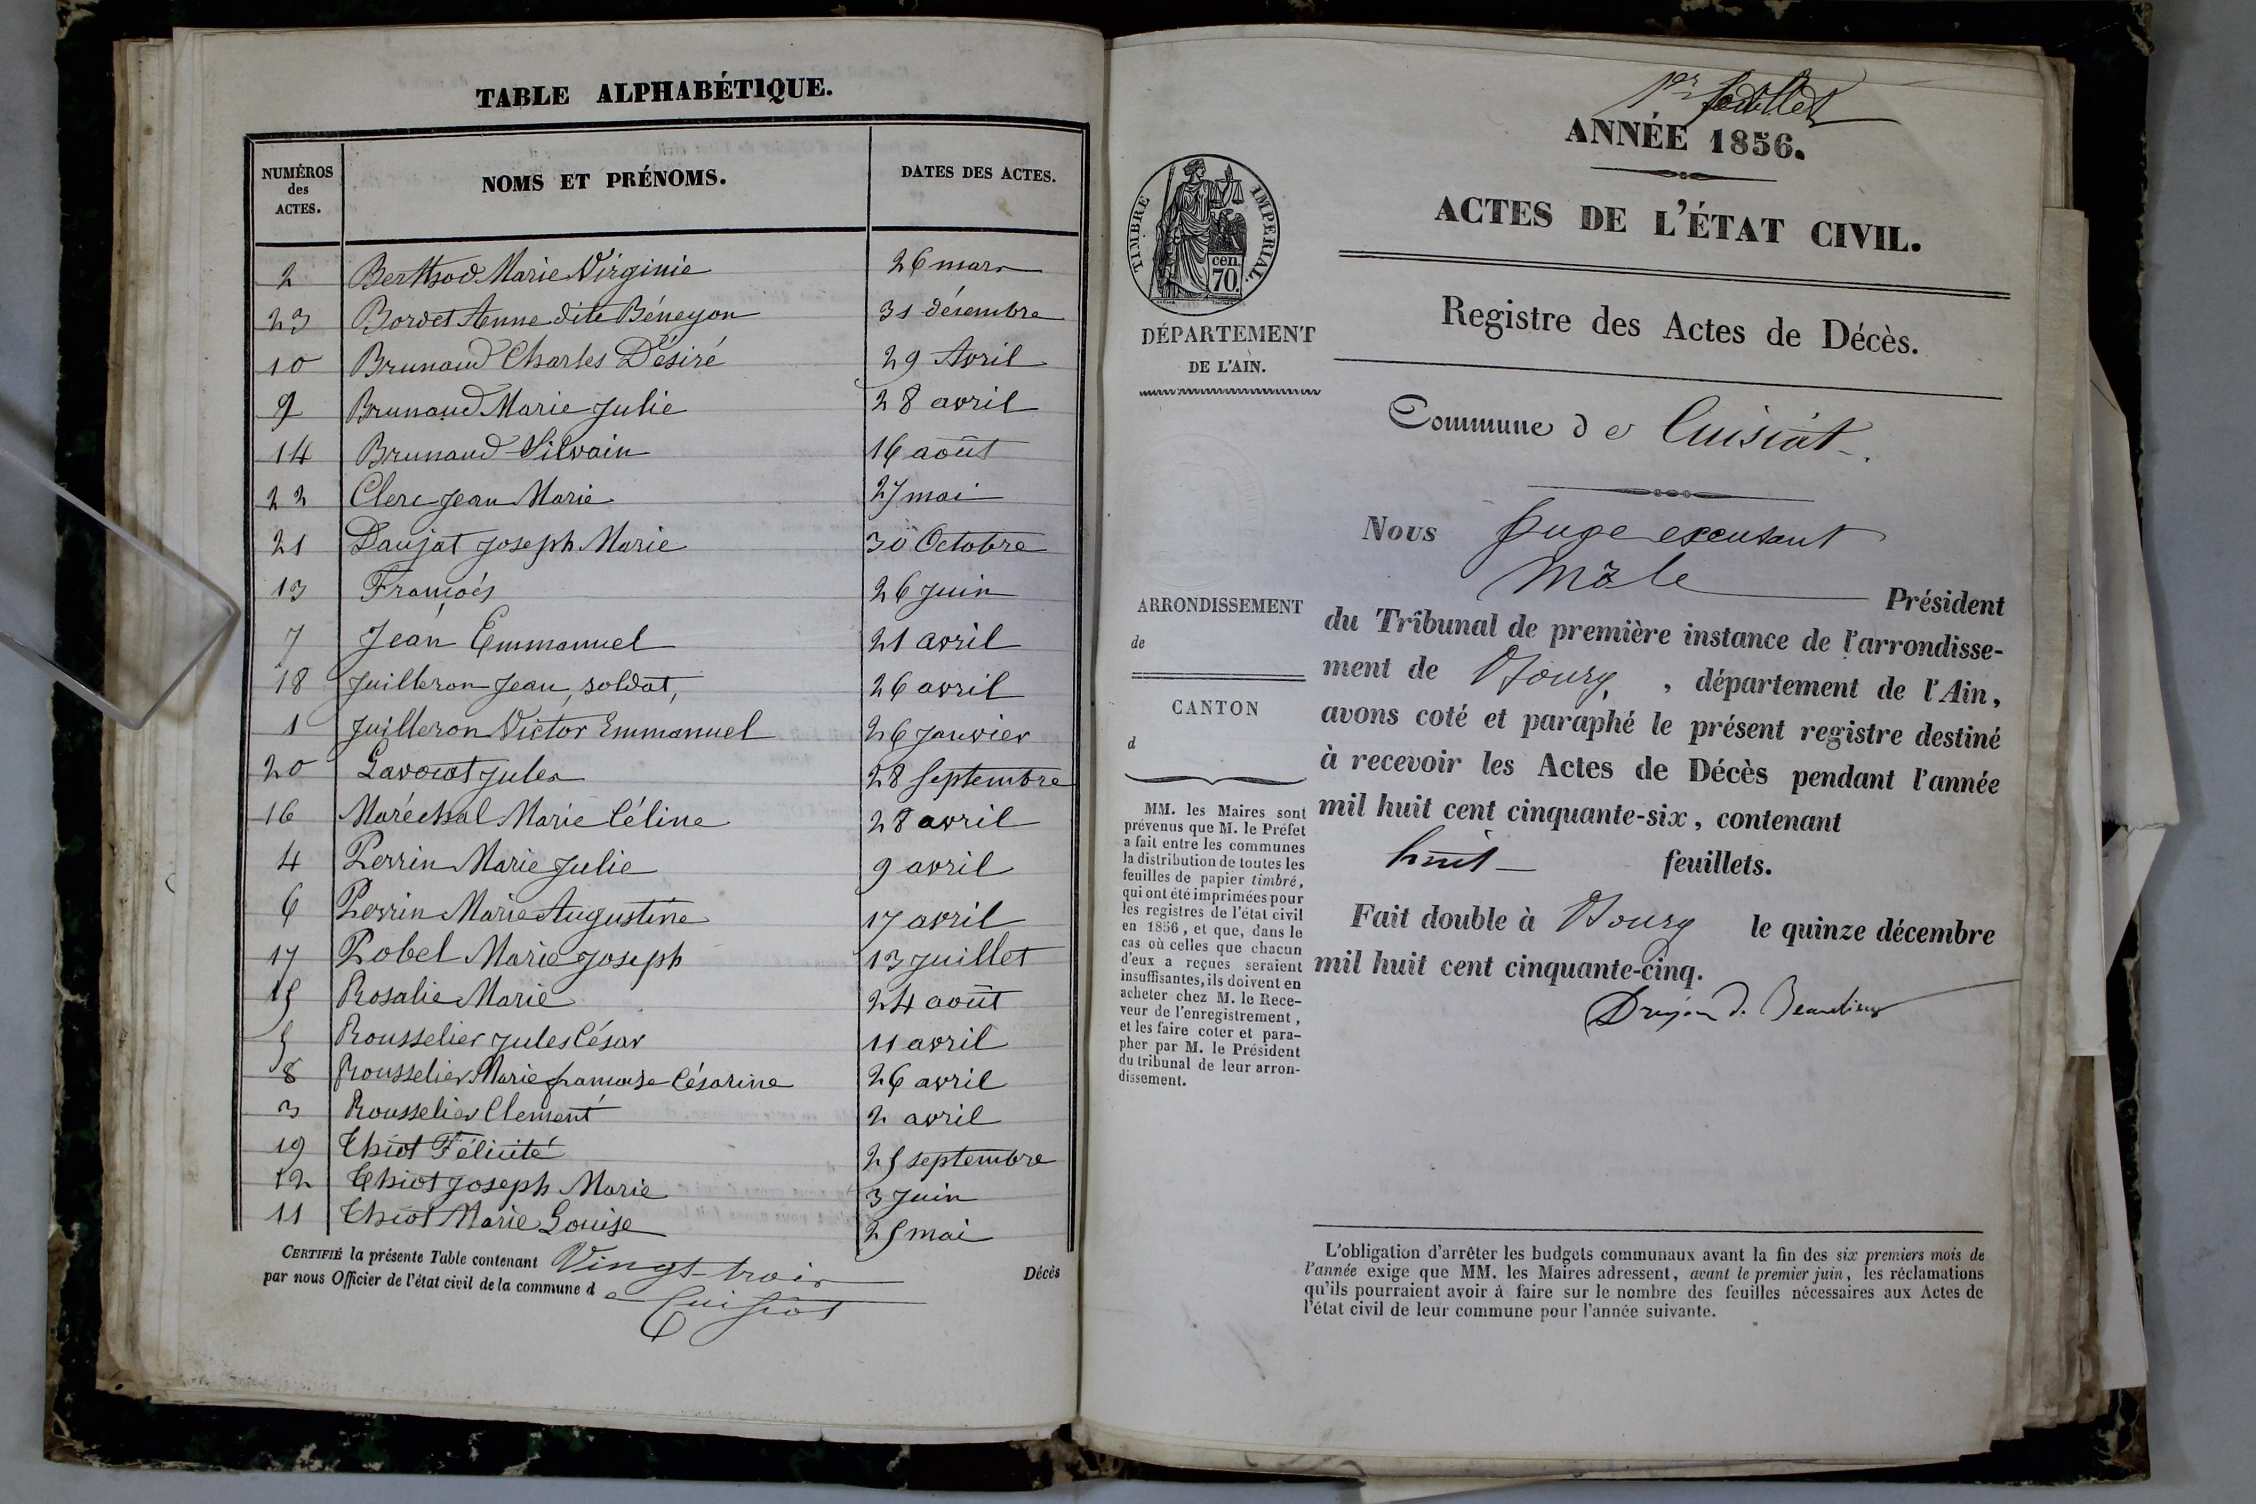 TABLE ALPHABÉTIQUE.
NUMÉROS des ACTES. NOMS ET PRÉNOMS. DATES DES ACTES.
2 Berthod Marie Virginie 26 mars
23 Bordet Anne dite Béneyon 31 désembre
10 Brunaud Charles Désiré 29 Avril
9 Brunaud Marie Julie 28 avril
14 Brunaud Silvain 16 août
22 Clerc Jean Marie 27 mai
21 Daujat Joseph Marie 30 Octobre
13 François 26 Juin
7 Jean Emmanuel 21 avril
18 Juilleron Jean, soldat, 26 avril
1 Juilleron Victor Emmanuel 26 Janvier
20 Lavocat Jules 28 Septembre
16 Maréchal Marie Céline 28 avril
4 Perrin Marie Julie 9 avril
6 Perrin Marie Augustine 17 avril
17 Pobel Marie Joseph 13 Juillet
15 Rosalie Marie 24 août
5 Rousselier Jules César 11 avril
8 Rousselier Marie françoise Césarine 26 avril
3 Rousselier Clement 2 avril
19 Thiot Félicité 25 septembre
12 Thiot Joseph Marie 3 Juin
11 Thiot Marie Louise 25 mai
CERTIFIÉ la présente Table contenant Vingt-trois Décès
par nous Officier de l'état civil de la commune de Cuisiat
1er feuillet
ANNÉE 1856.
ACTES DE L'ÉTAT CIVIL.
TIMBRE IMPÉRIAL.
cen.
70.
DÉPARTEMENT
DE L'AIN.
Registre des Actes de Décès.
Commune de Cuisiat.
Nous Juge
Président
du Tribunal de première instance de l'arrondisse-
ment de Bourg, département de l'Ain,
avons coté et paraphé le présent registre destiné
à recevoir les Actes de Décès pendant l'année
mil huit cent cinquante-six, contenant
huit feuillets.
Fait double à Bourg le quinze décembre
mil huit cent cinquante-cinq.
ARRONDISSEMENT
de
CANTON
d
MM. les Maires sont
prévenus que M. le Préfet
a fait entre les communes
la distribution de toutes les
feuilles de papier timbré,
qui ont été imprimées pour
les registres de l'état civil
en 1856, et que, dans le
cas où celles que chacun
d'eux a reçues seraient
insuffisantes, ils doivent en
acheter chez M. le Rece-
veur de l'enregistrement,
et les faire coter et para-
pher par M. le Président
du tribunal de leur arron-
dissement.
L'obligation d'arrêter les budgets communaux avant la fin des six premiers mois de
l'année exige que MM. les Maires adressent, avant le premier juin, les réclamations
qu'ils pourraient avoir à faire sur le nombre des feuilles nécessaires aux Actes de
l'état civil de leur commune pour l'année suivante.